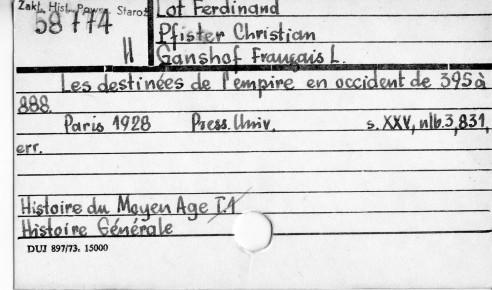 Zakł. Hist. Powsz. Staroż.
58774
II
Lot Ferdinand
Pfister Christian
Ganshof Français L.
Les destinées de l'empire en occident de 395 à
888.
Paris 1928 Press. Univ. s. XXV, nlb. 3, 831,
err.
Histoire du Moyen Age T.1
Histoire Générale
DUJ 897/73. 15000